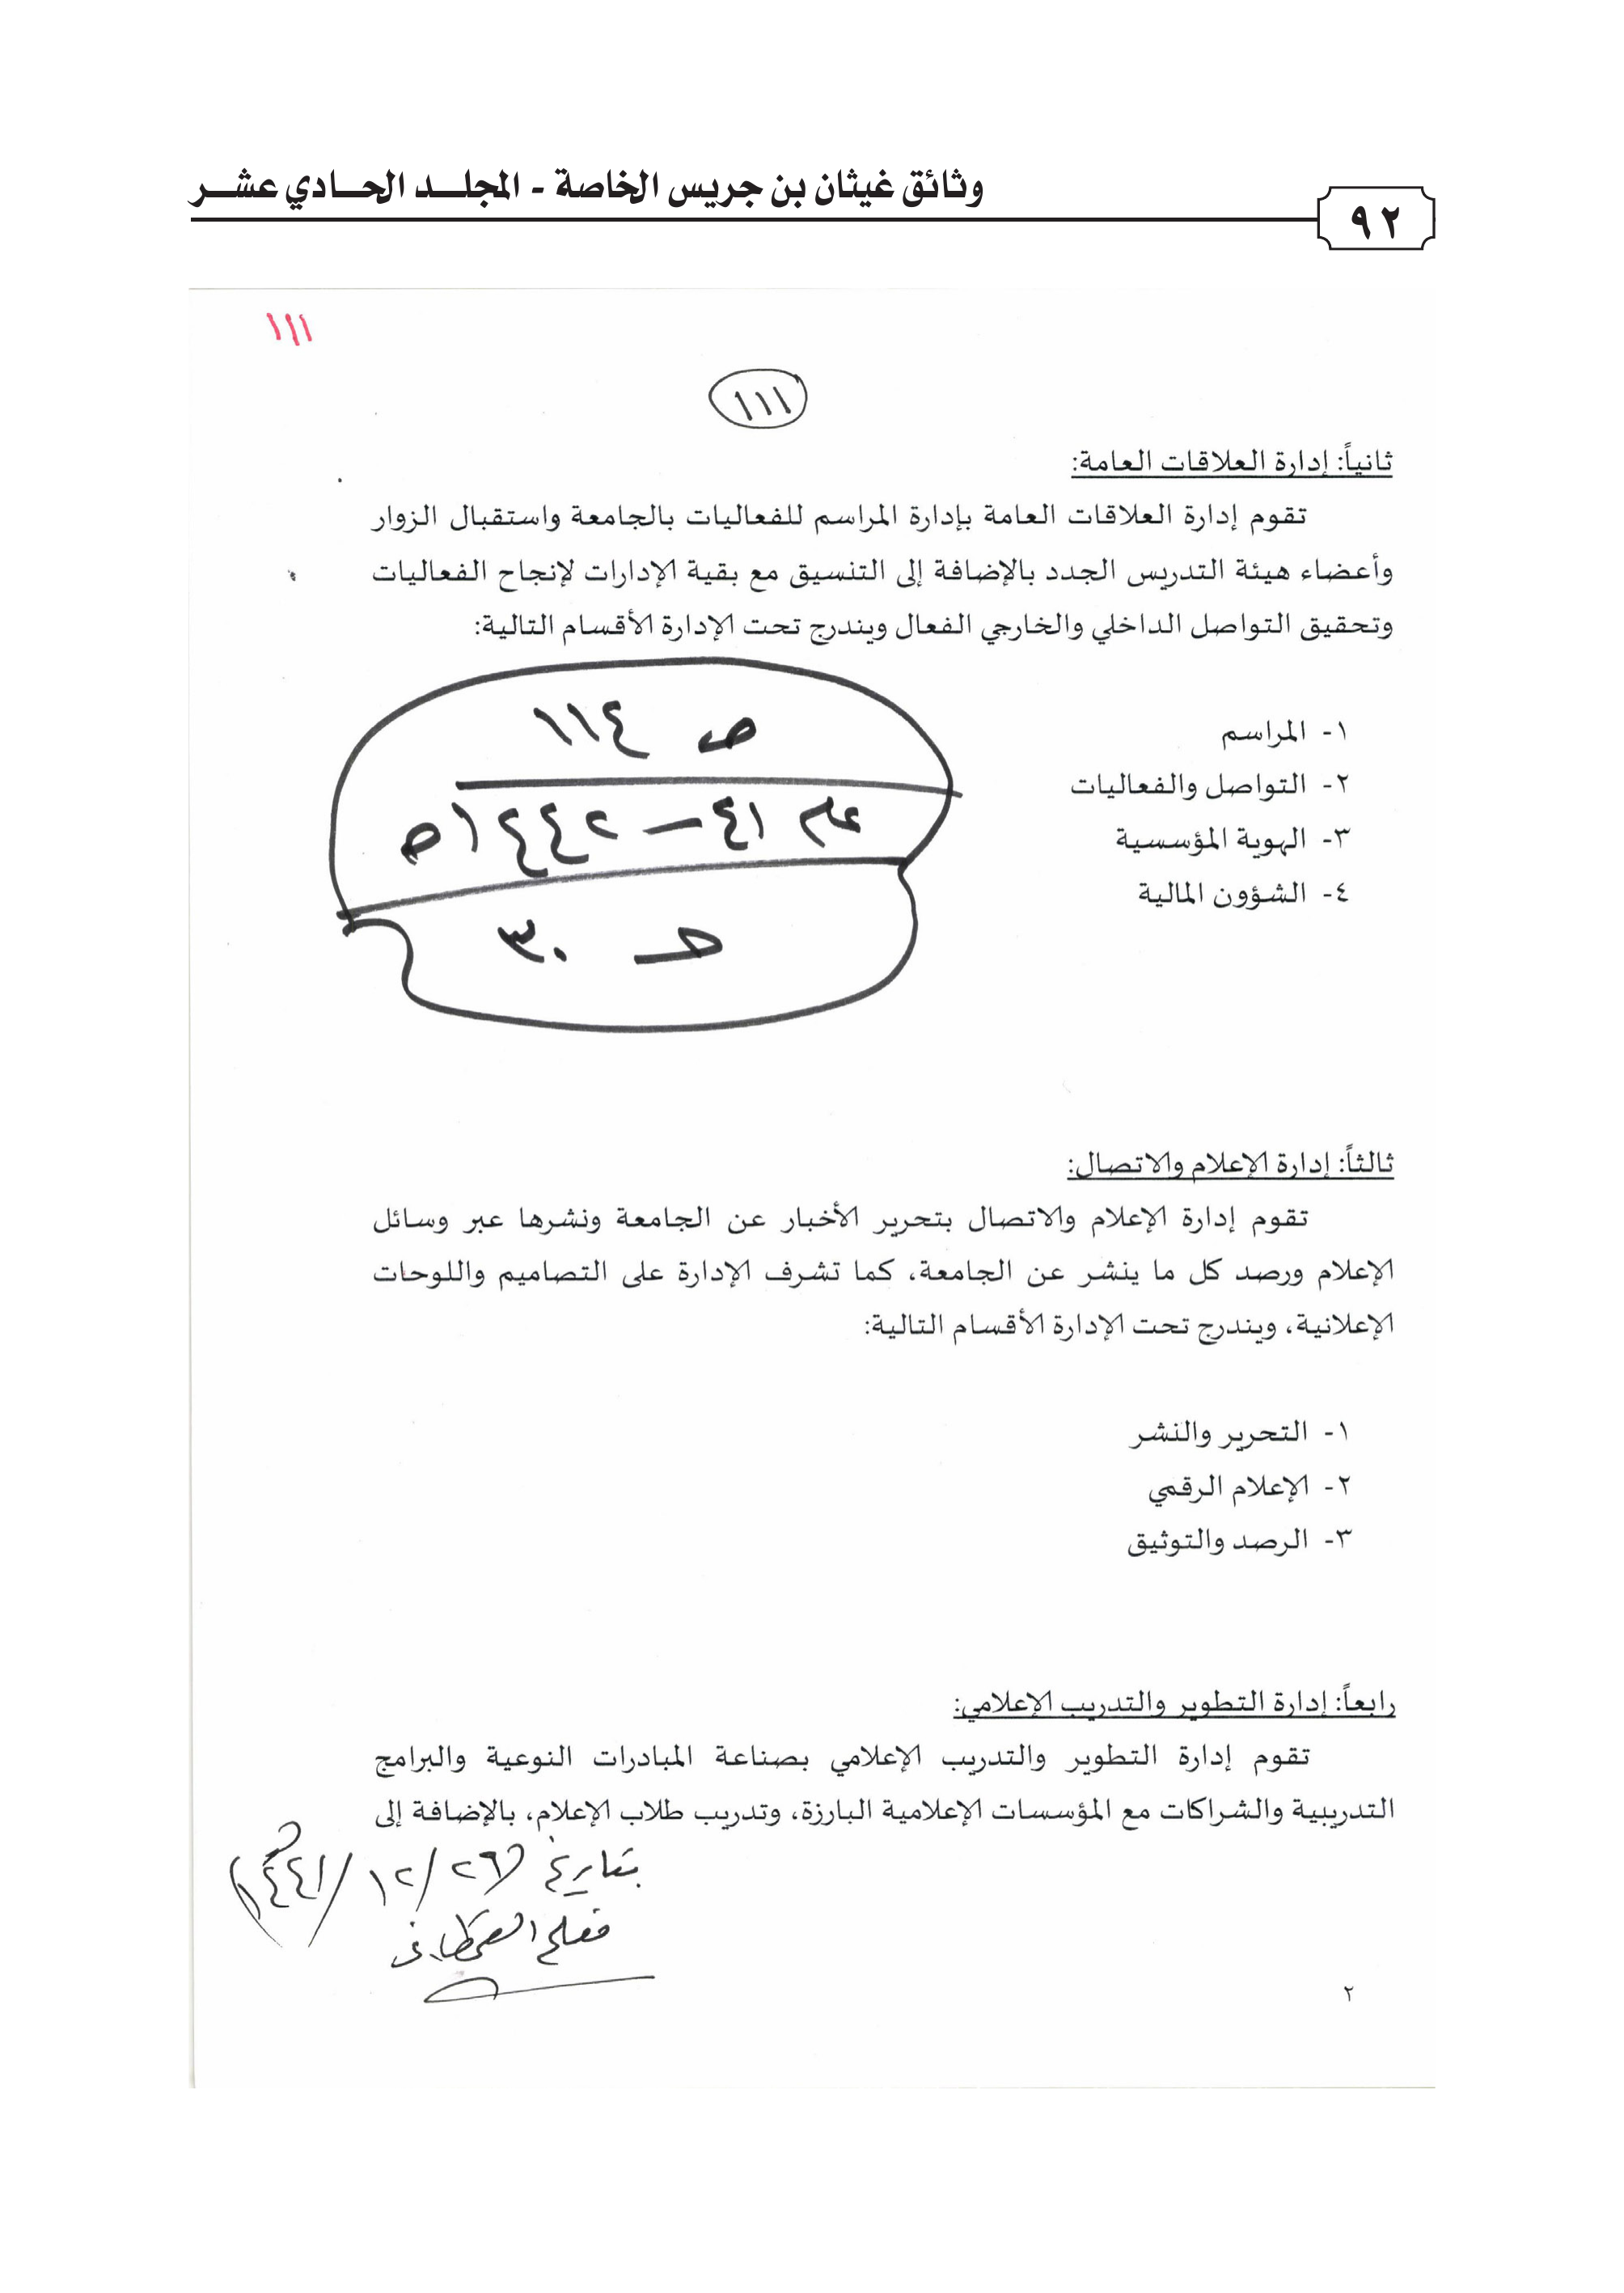 وثائق غيثان بن جريس الخاصة - المجلد الحادي عشر
٩٢
١١١
١١١
ثانياً: إدارة العلاقات العامة:
تقوم إدارة العلاقات العامة بإدارة المراسم للفعاليات بالجامعة واستقبال الزوار
وأعضاء هيئة التدريس الجدد بالإضافة إلى التنسيق مع بقية الإدارات لإنجاح الفعاليات
وتحقيق التواصل الداخلي والخارجي الفعال ويندرج تحت الإدارة الأقسام التالية:
١- المراسم
٢- التواصل والفعاليات
٣- الهوية المؤسسية
٤- الشؤون المالية
ص ١١٤
عام ٤١ – ١٤٤٢هـ
حـ ٣٠
ثالثاً: إدارة الإعلام والاتصال:
تقوم إدارة الإعلام والاتصال بتحرير الأخبار عن الجامعة ونشرها عبر وسائل
الإعلام ورصد كل ما ينشر عن الجامعة، كما تشرف الإدارة على التصاميم واللوحات
الإعلانية، ويندرج تحت الإدارة الأقسام التالية:
١- التحرير والنشر
٢- الإعلام الرقمي
٣- الرصد والتوثيق
رابعاً: إدارة التطوير والتدريب الإعلامي:
تقوم إدارة التطوير والتدريب الإعلامي بصناعة المبادرات النوعية والبرامج
التدريبية والشراكات مع المؤسسات الإعلامية البارزة، وتدريب طلاب الإعلام، بالإضافة إلى
بتاريخ (٢٦/١٢/١٤٤١هـ)
القحطاني
٢